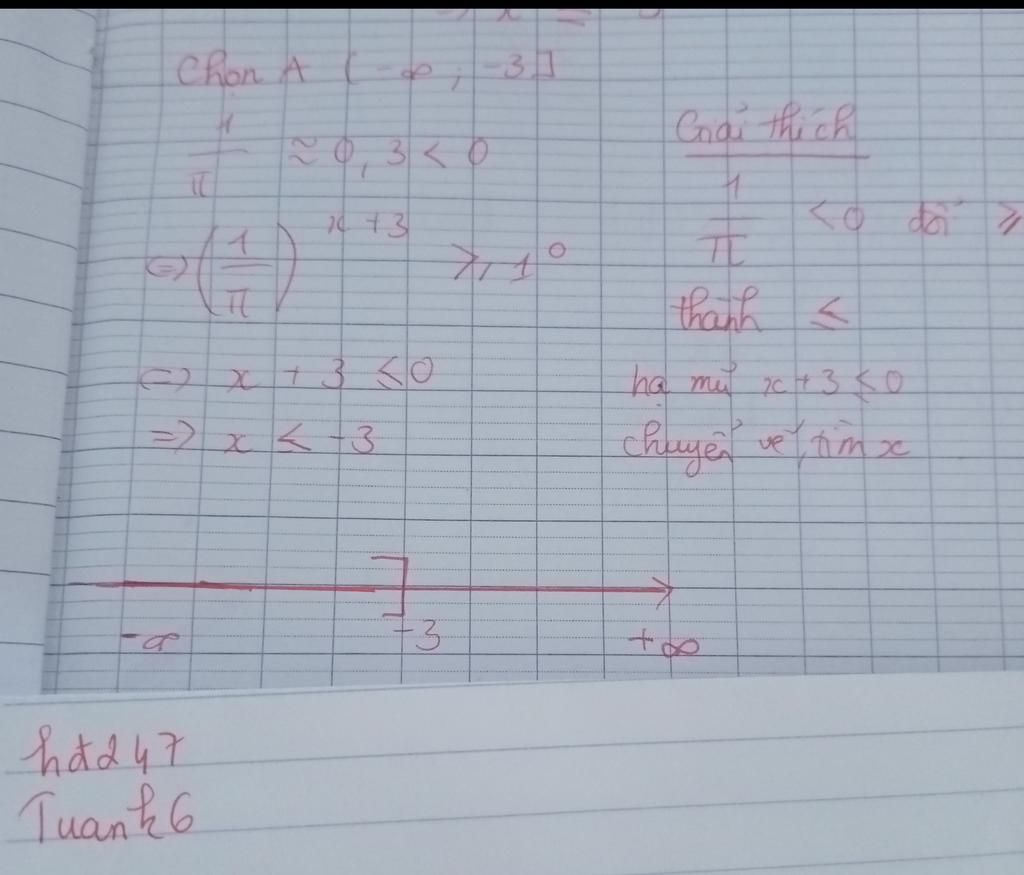 Chọn A (-∞; -3]
1/π ≈ 0,3 < 0
<=> (1/π)^(x+3) ≥ 1^0
<=> x + 3 ≤ 0
=> x ≤ -3
Giải thích
1/π < 0 đổi ≥
thành ≤
hạ mũ x+3 ≤ 0
chuyển vế, tìm x
-∞ -3 +∞
hdd247
Tuanh26